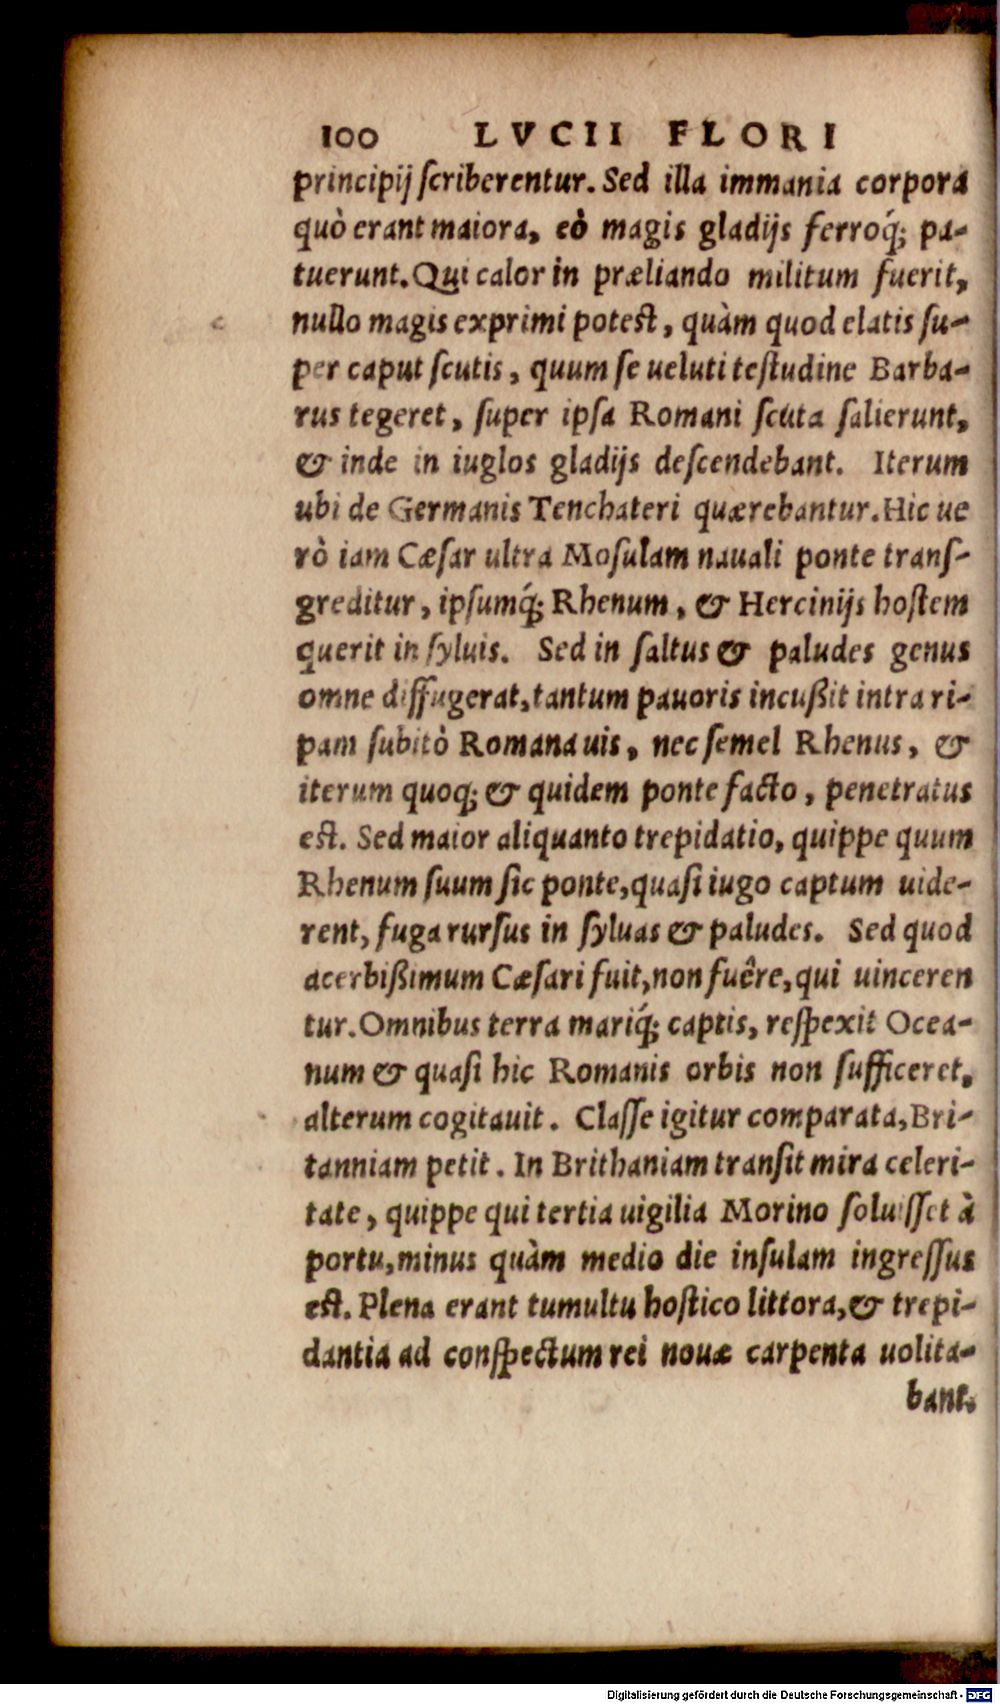 100 LVCII FLORI
principij ſcriberentur. Sed illa immania corpora
quò erant maiora, eò magis gladijs ferroq́; pa-
tuerunt. Qui calor in præliando militum fuerit,
nullo magis exprimi poteſt, quàm quod elatis ſu-
per caput ſcutis, quum ſe ueluti teſtudine Barba-
rus tegeret, ſuper ipſa Romani ſcuta ſalierunt,
& inde in iuglos gladijs deſcendebant. Iterum
ubi de Germanis Tenchateri quærebantur. Hic ue
rò iam Cæſar ultra Moſulam nauali ponte tranſ-
greditur, ipſumq́; Rhenum, & Hercinijs hoſtem
querit in ſyluis. Sed in ſaltus & paludes genus
omne diffugerat, tantum pauoris incußit intra ri-
pam ſubitò Romana uis, nec ſemel Rhenus, &
iterum quoq; & quidem ponte facto, penetratus
eſt. Sed maior aliquanto trepidatio, quippe quum
Rhenum ſuum ſic ponte, quaſi iugo captum uide-
rent, fuga rurſus in ſyluas & paludes. Sed quod
acerbißimum Cæſari fuit, non fuêre, qui uinceren
tur. Omnibus terra mariq́; captis, reſpexit Ocea-
num & quaſi hic Romanis orbis non ſufficeret,
alterum cogitauit. Claſſe igitur comparata, Bri-
tanniam petit. In Brithaniam tranſit mira celeri-
tate, quippe qui tertia uigilia Morino ſoluiſſet à
portu, minus quàm medio die inſulam ingreſſus
eſt. Plena erant tumultu hoſtico littora, & trepi-
dantia ad conſpectum rei nouæ carpenta uolita-
bant.
Digitalisierung gefördert durch die Deutsche Forschungsgemeinschaft - DFG